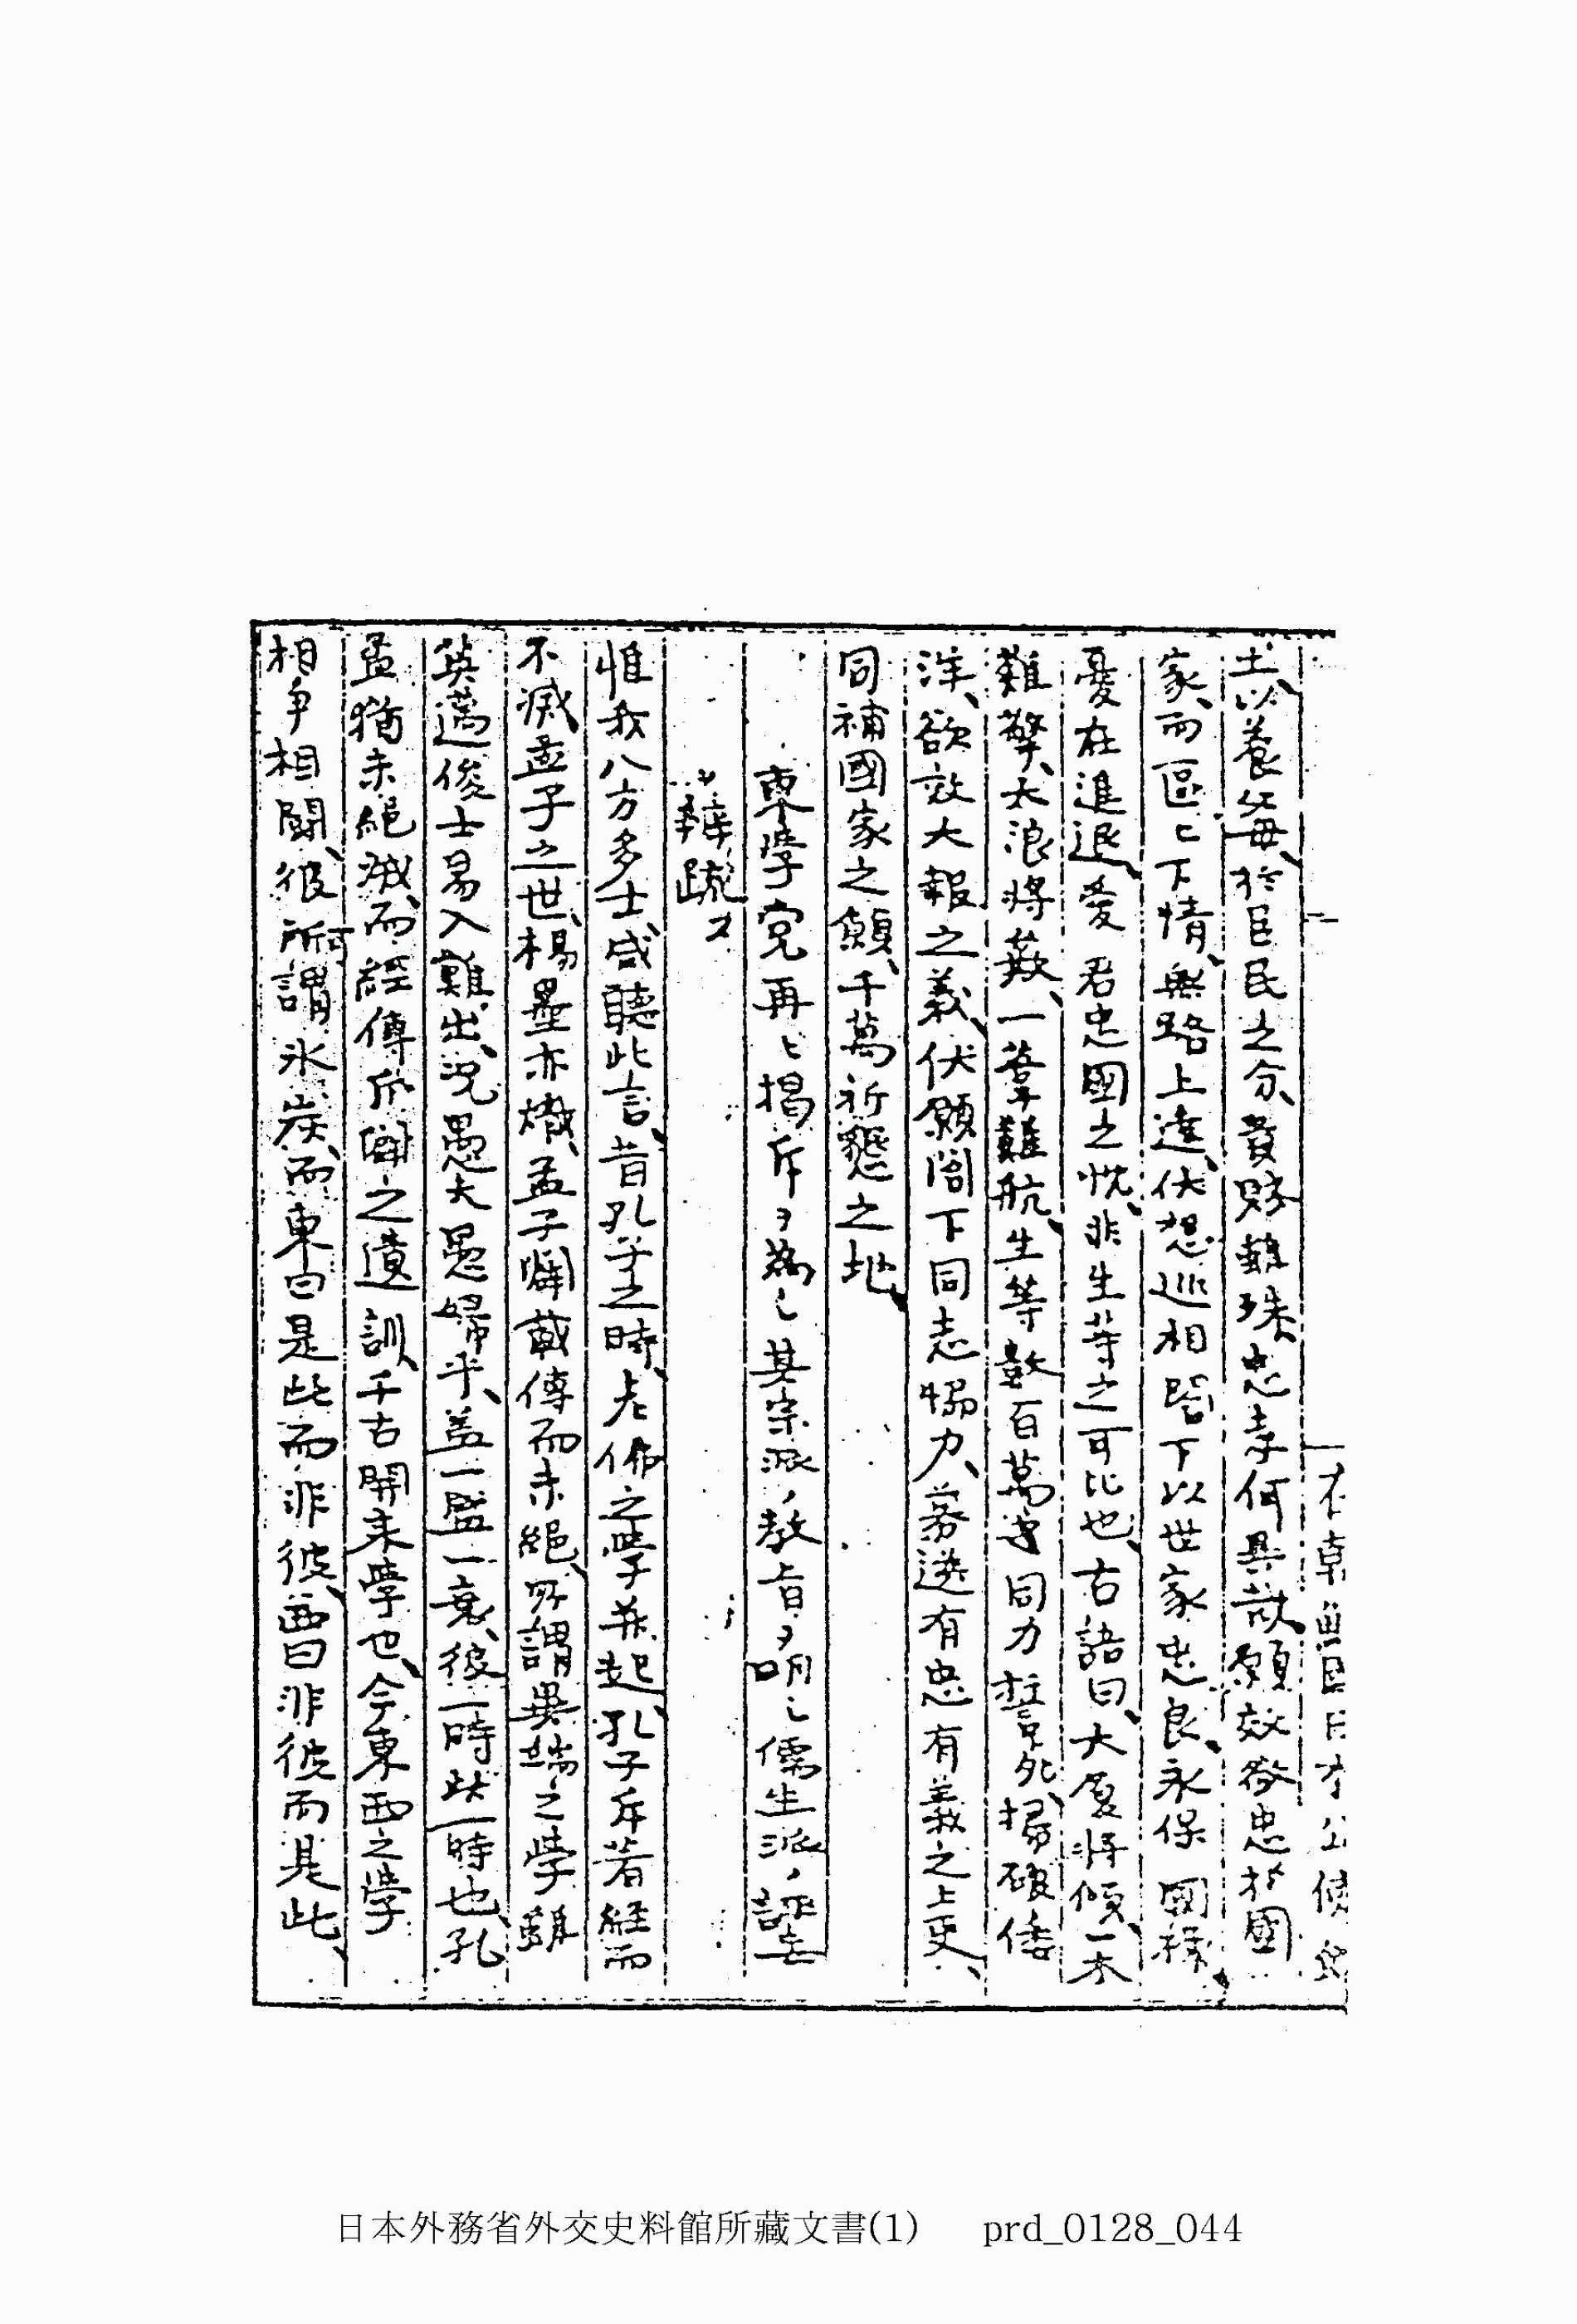 在京城日本公使館
土、以養每、於臣民之分、貴賤雖殊、忠孝何異哉、願效愚忠於國
家、而區々下情、無路上達、伏想巡相閤下以世家忠良、永保國祿、
憂在進退、愛君忠國之忱、非生等之可比也、古語曰、大厦將傾、一木
難擎、大浪將蔽、一葦難航、生等數百萬同力誓死、掃破倭
洋、欲效大報之義、伏願閤下同志協力、募選有忠有義之士吏、
同補國家之願、千萬祈懇之地、
東學党再ヒ揭斥ヲ為シ其宗派ノ教旨ヲ明シ儒生派ノ誣妄
ヲ辯疏ス
惟我八方多士、咸聽此言、昔孔子之時、老佛之學並起、孔子斥著經而
不滅、孟子之世、楊墨亦熾、孟子闢載傳而未絕、所謂異端之學、雖
英邁俊士易入難出、況愚夫愚婦乎、盖一盛一衰、彼一時此一時也、孔
孟猶未絕滅、而經傳斥闢之遺訓、千古開來學也、今東西之學
相爭相鬪、彼所謂氷炭、而東曰是此而非彼、西曰非彼而是此、
日本外務省外交史料館所藏文書(1) prd_0128_044